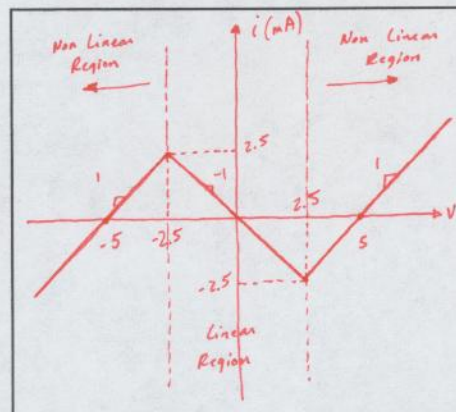 Non Linear
Region
i (mA)
Non Linear
Region
2.5
1
-1
2.5
1
V
-5
-2.5
5
-2.5
Linear
Region